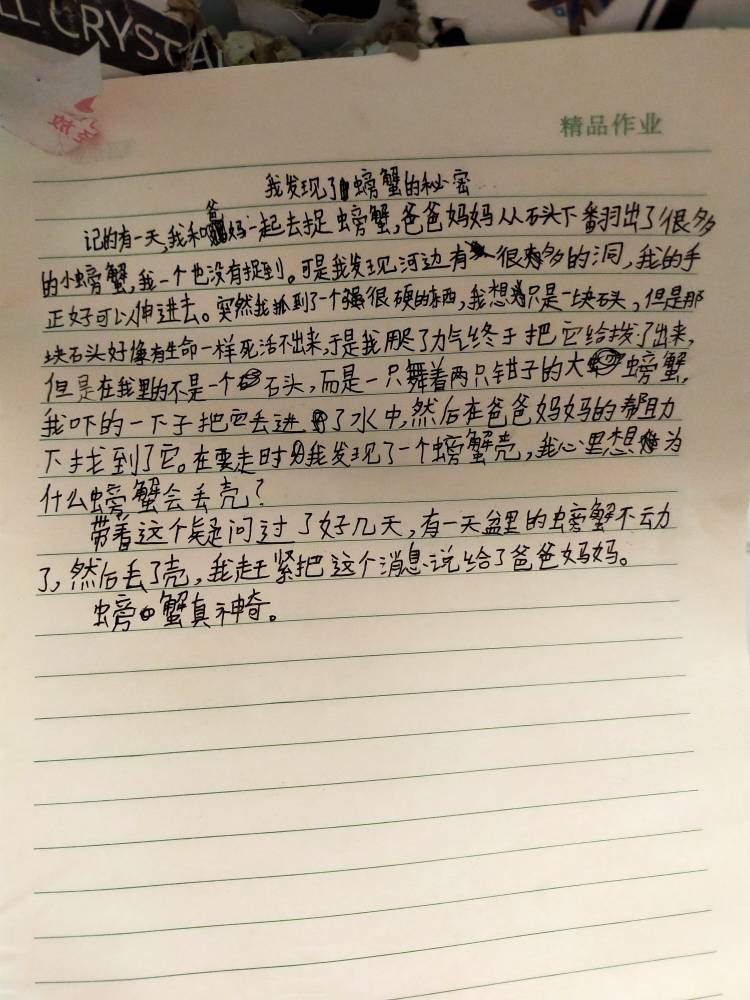 LL CRYSTAL
精品作业
我发现了螃蟹的秘密
记的有一天,我和爸妈一起去捉螃蟹,爸爸妈妈从石头下翻出了很多
的小螃蟹,我一个也没有捉到。可是我发现河边有很多的洞,我的手
正好可以伸进去。突然我抓到了个很硬的东西,我想只是一块石头,但是那
块石头好像有生命一样死活不出来,于是我用尽了力气终于把它给拨了出来,
但是在我里的不是一个石头,而是一只舞着两只钳子的大螃蟹,
我吓的一下子把它丢进了水中,然后在爸爸妈妈的帮助力
下找到了它。在要走时我发现了一个螃蟹壳,我心里想为
什么螃蟹会丢壳?
带着这个疑问过了好几天,有一天盆里的螃蟹不动
了,然后丢了壳,我赶紧把这个消息说给了爸爸妈妈。
螃蟹真神奇。